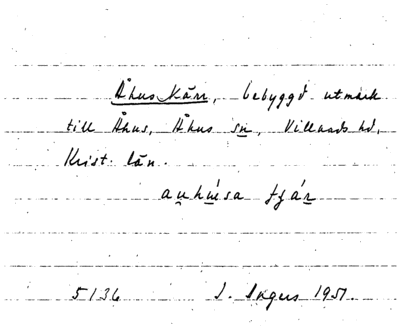 Åhus Kärr, bebyggd utmark
till Åhus, Åhus sn, Villands hd,
Krist. län.
auhúsa tjár
5136 I. Ingers 1951.